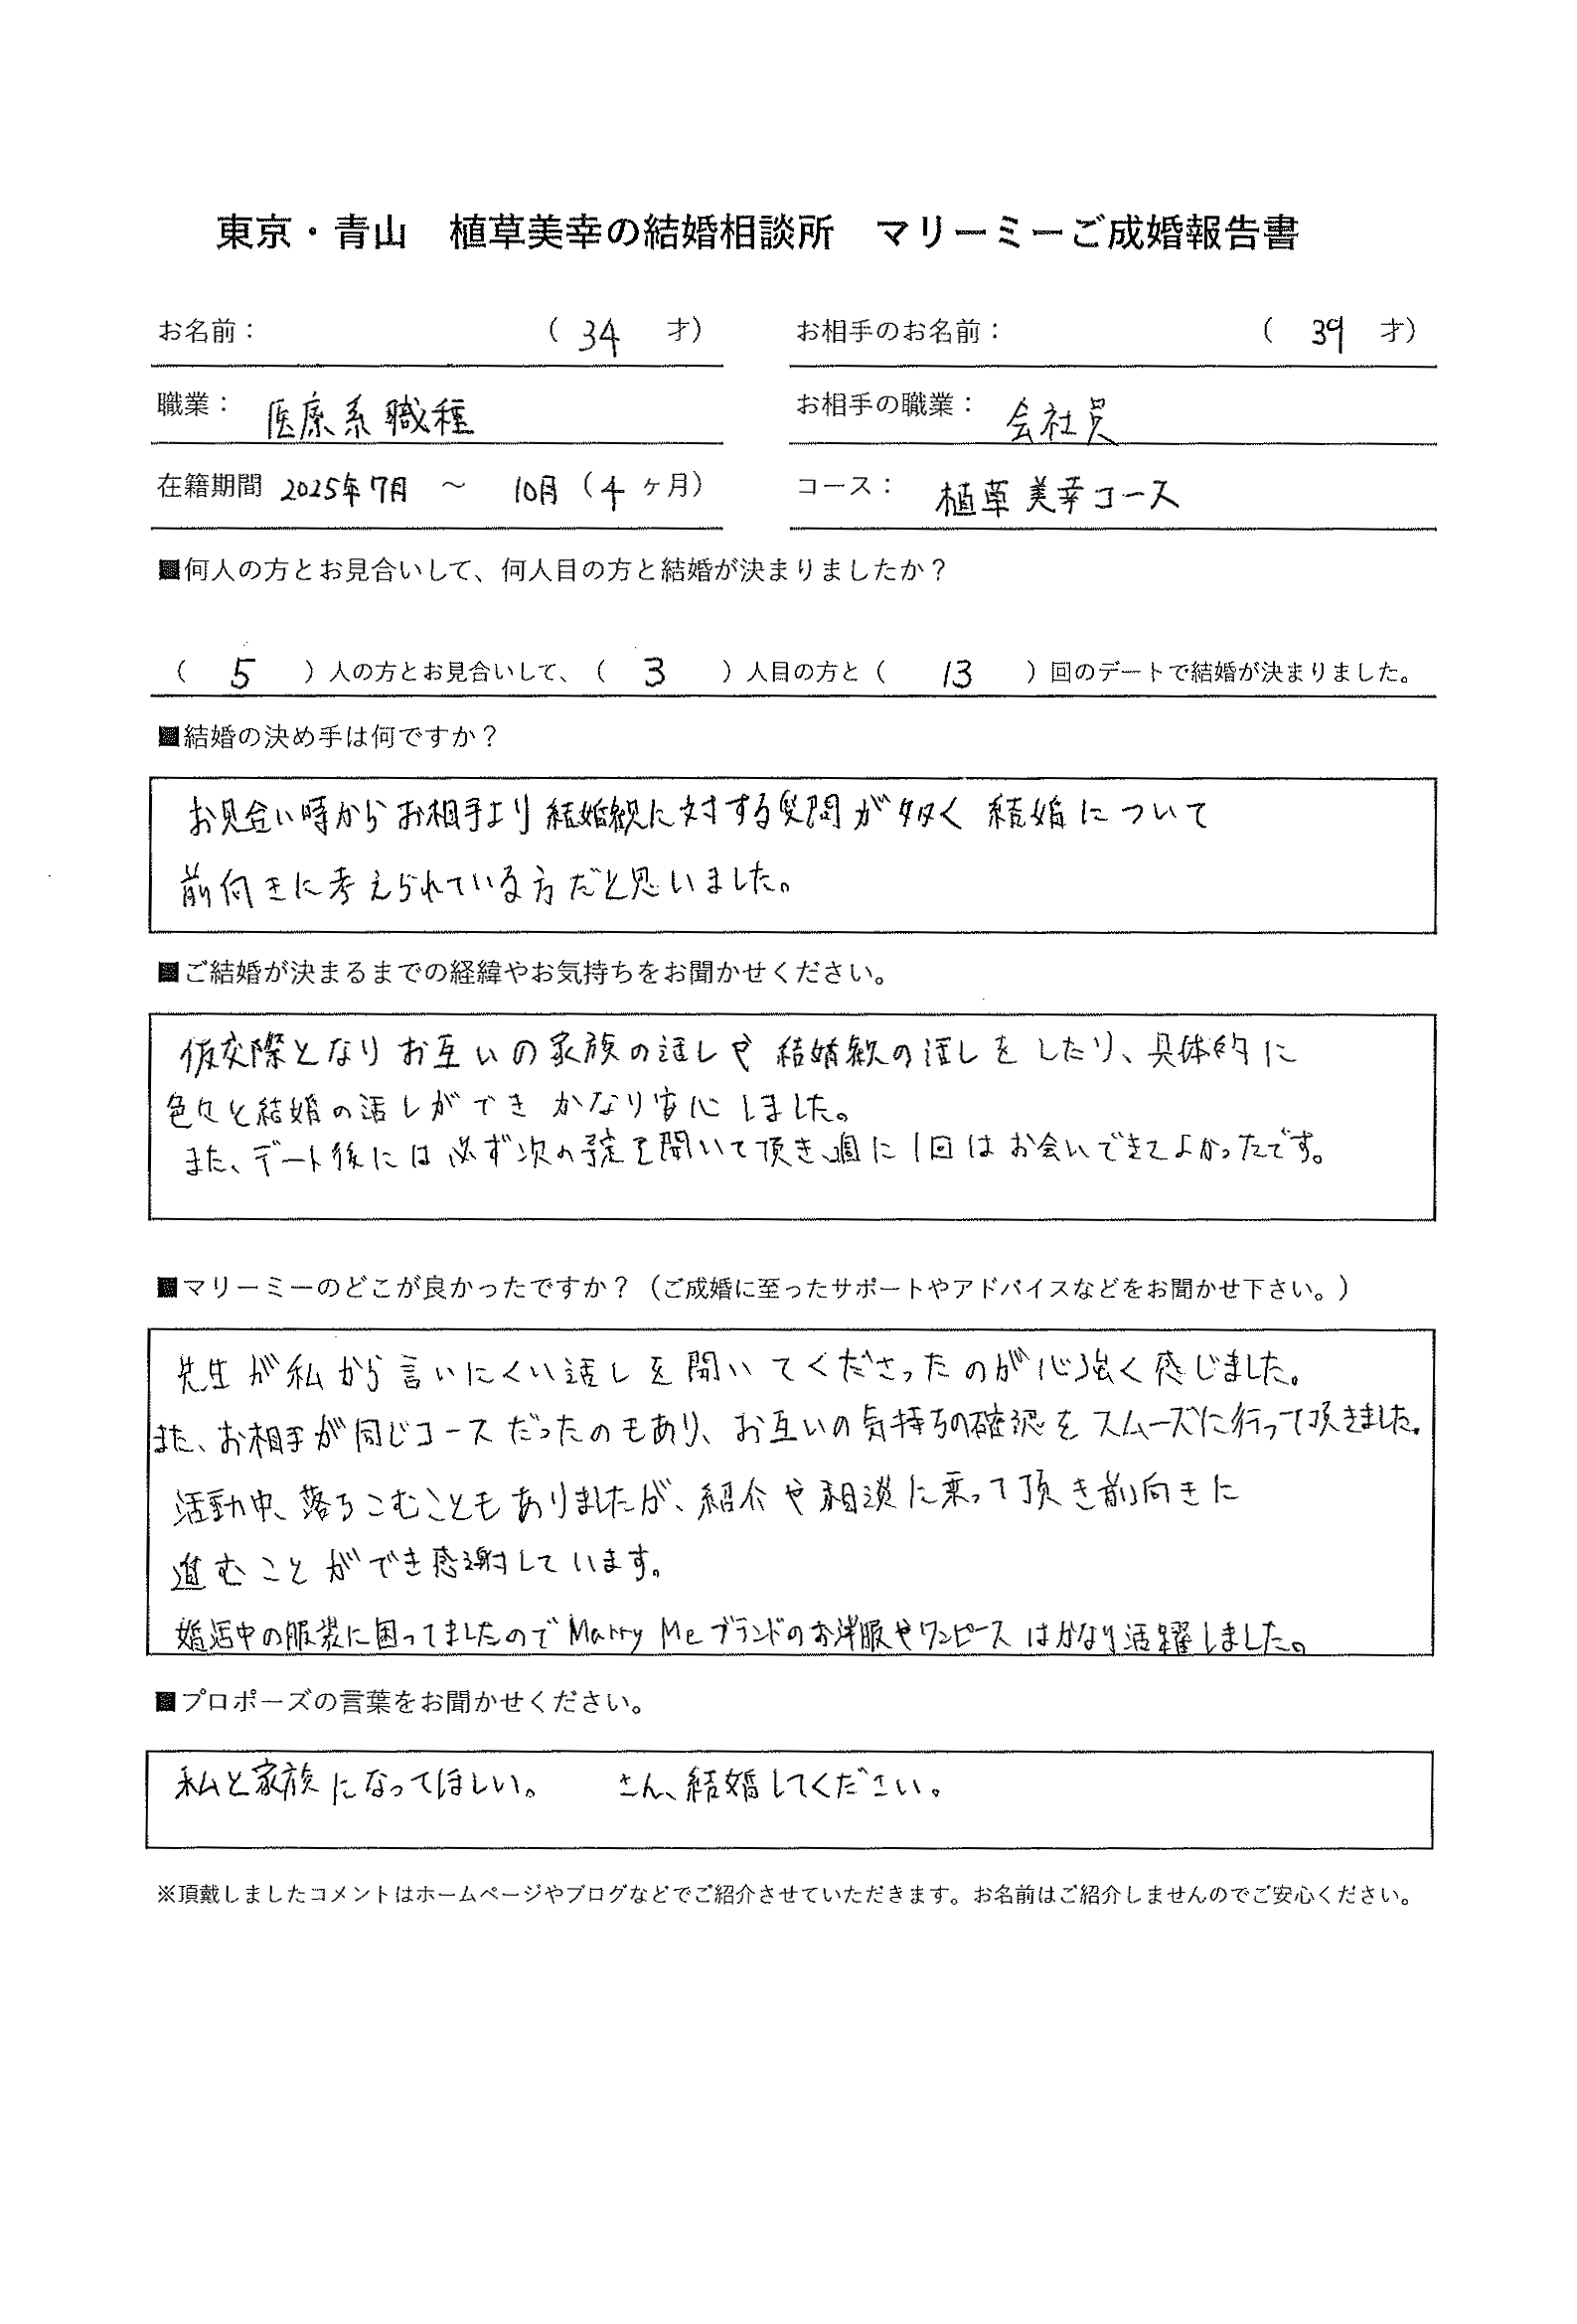 東京・青山　植草美幸の結婚相談所　マリーミーご成婚報告書
お名前：　（ 34 才）　お相手のお名前：　（ 39 才）
職業：　医療系職種　お相手の職業：　会社員
在籍期間　2025年7月　～　10月（4ヶ月）　コース：　植草美幸コース
■何人の方とお見合いして、何人目の方と結婚が決まりましたか？
（ 5 ）人の方とお見合いして、（ 3 ）人目の方と（ 13 ）回のデートで結婚が決まりました。
■結婚の決め手は何ですか？
お見合い時からお相手より結婚観に対する質問が多く 結婚について
前向きに考えられている方だと思いました。
■ご結婚が決まるまでの経緯やお気持ちをお聞かせください。
仮交際となりお互いの家族の話しや結婚観の話しをしたり、具体的に
色々と結婚の話しができ かなり安心しました。
また、デート後には必ず次の予定を聞いて頂き、週に1回はお会いできてよかったです。
■マリーミーのどこが良かったですか？（ご成婚に至ったサポートやアドバイスなどをお聞かせ下さい。）
先生が私から言いにくい話しを聞いてくださったのが心強く感じました。
また、お相手が同じコースだったのもあり、お互いの気持ちの確認をスムーズに行って頂きました。
活動中、落ちこむこともありましたが、紹介や相談に乗って頂き前向きに
進むことができ感謝しています。
婚活中の服装に困ってましたのでMarry Meブランドのお洋服やワンピースはかなり活躍しました。
■プロポーズの言葉をお聞かせください。
私と家族になってほしい。　　さん、結婚してください。
※頂戴しましたコメントはホームページやブログなどでご紹介させていただきます。お名前はご紹介しませんのでご安心ください。